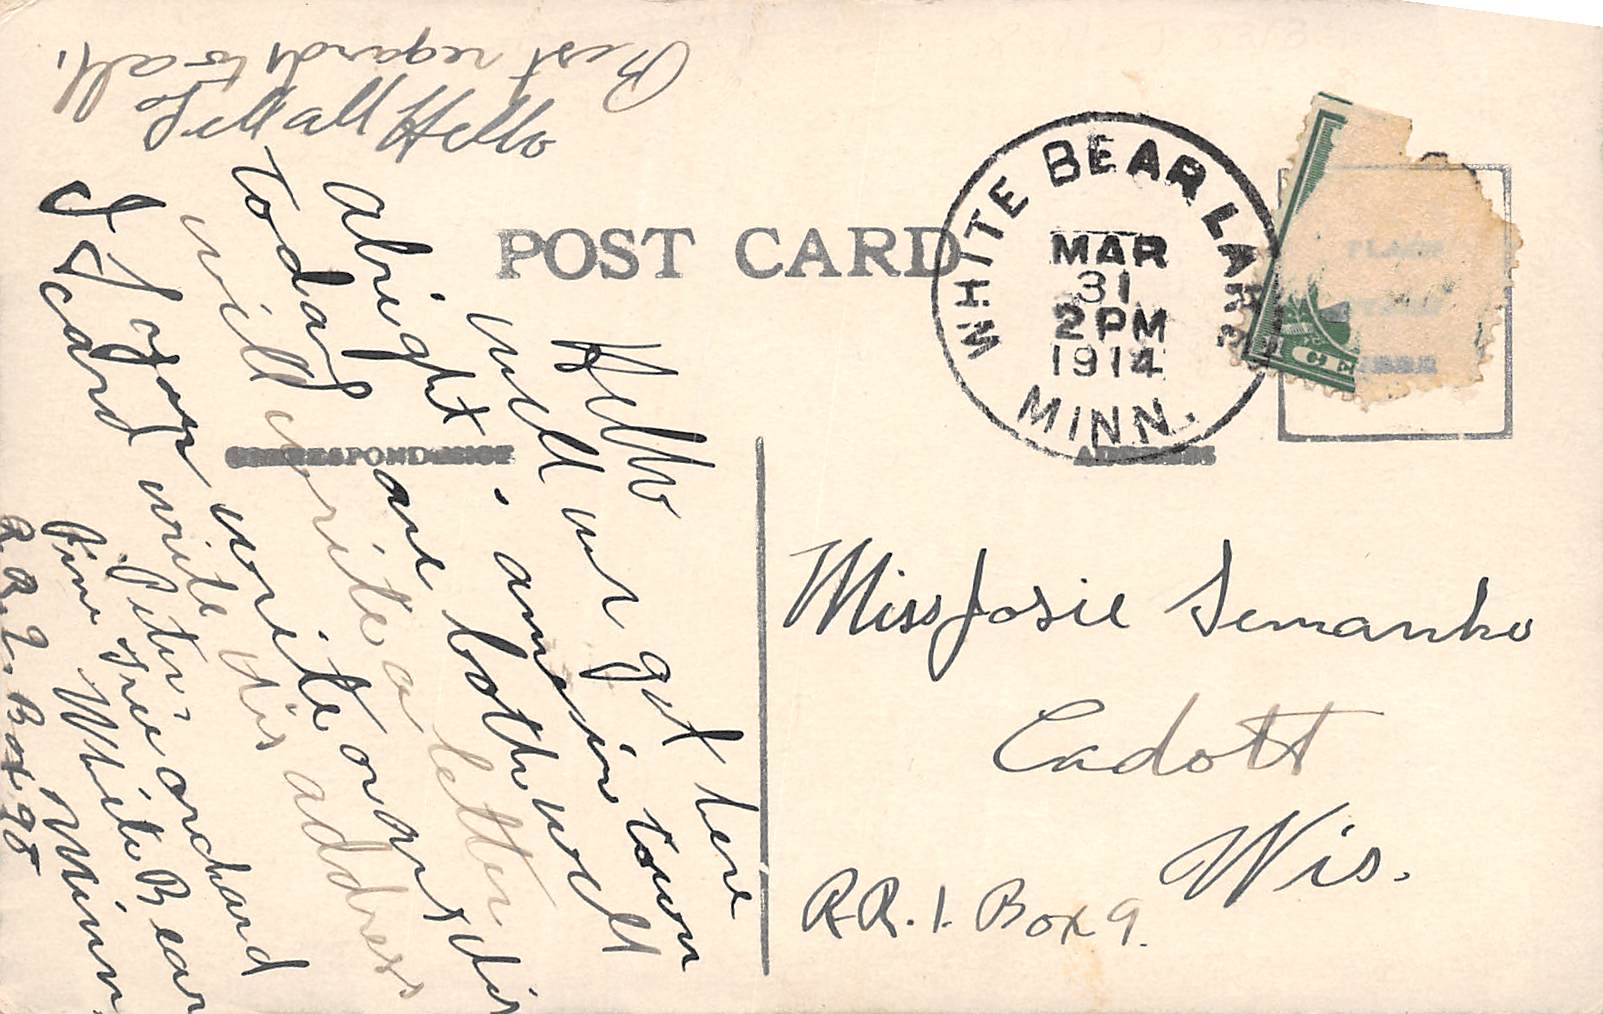 POST CARD
WHITE BEAR LAKE
MAR
31
2 PM
1914
MINN.
PLACE
STAMP
HERE
CE
CORRESPONDENCE
ADDRESS
Hello
well we got here
alright. am in town
today are both well
will write a letter
I you write or not
card write this address
Peter
Pine Tree orchard
White Bear
Minn.
R.R. 2. Box 98
Tell all Hello
Best regards to all.
Miss Josie Semanko
Cadott
Wis.
R.R. 1. Box 9.